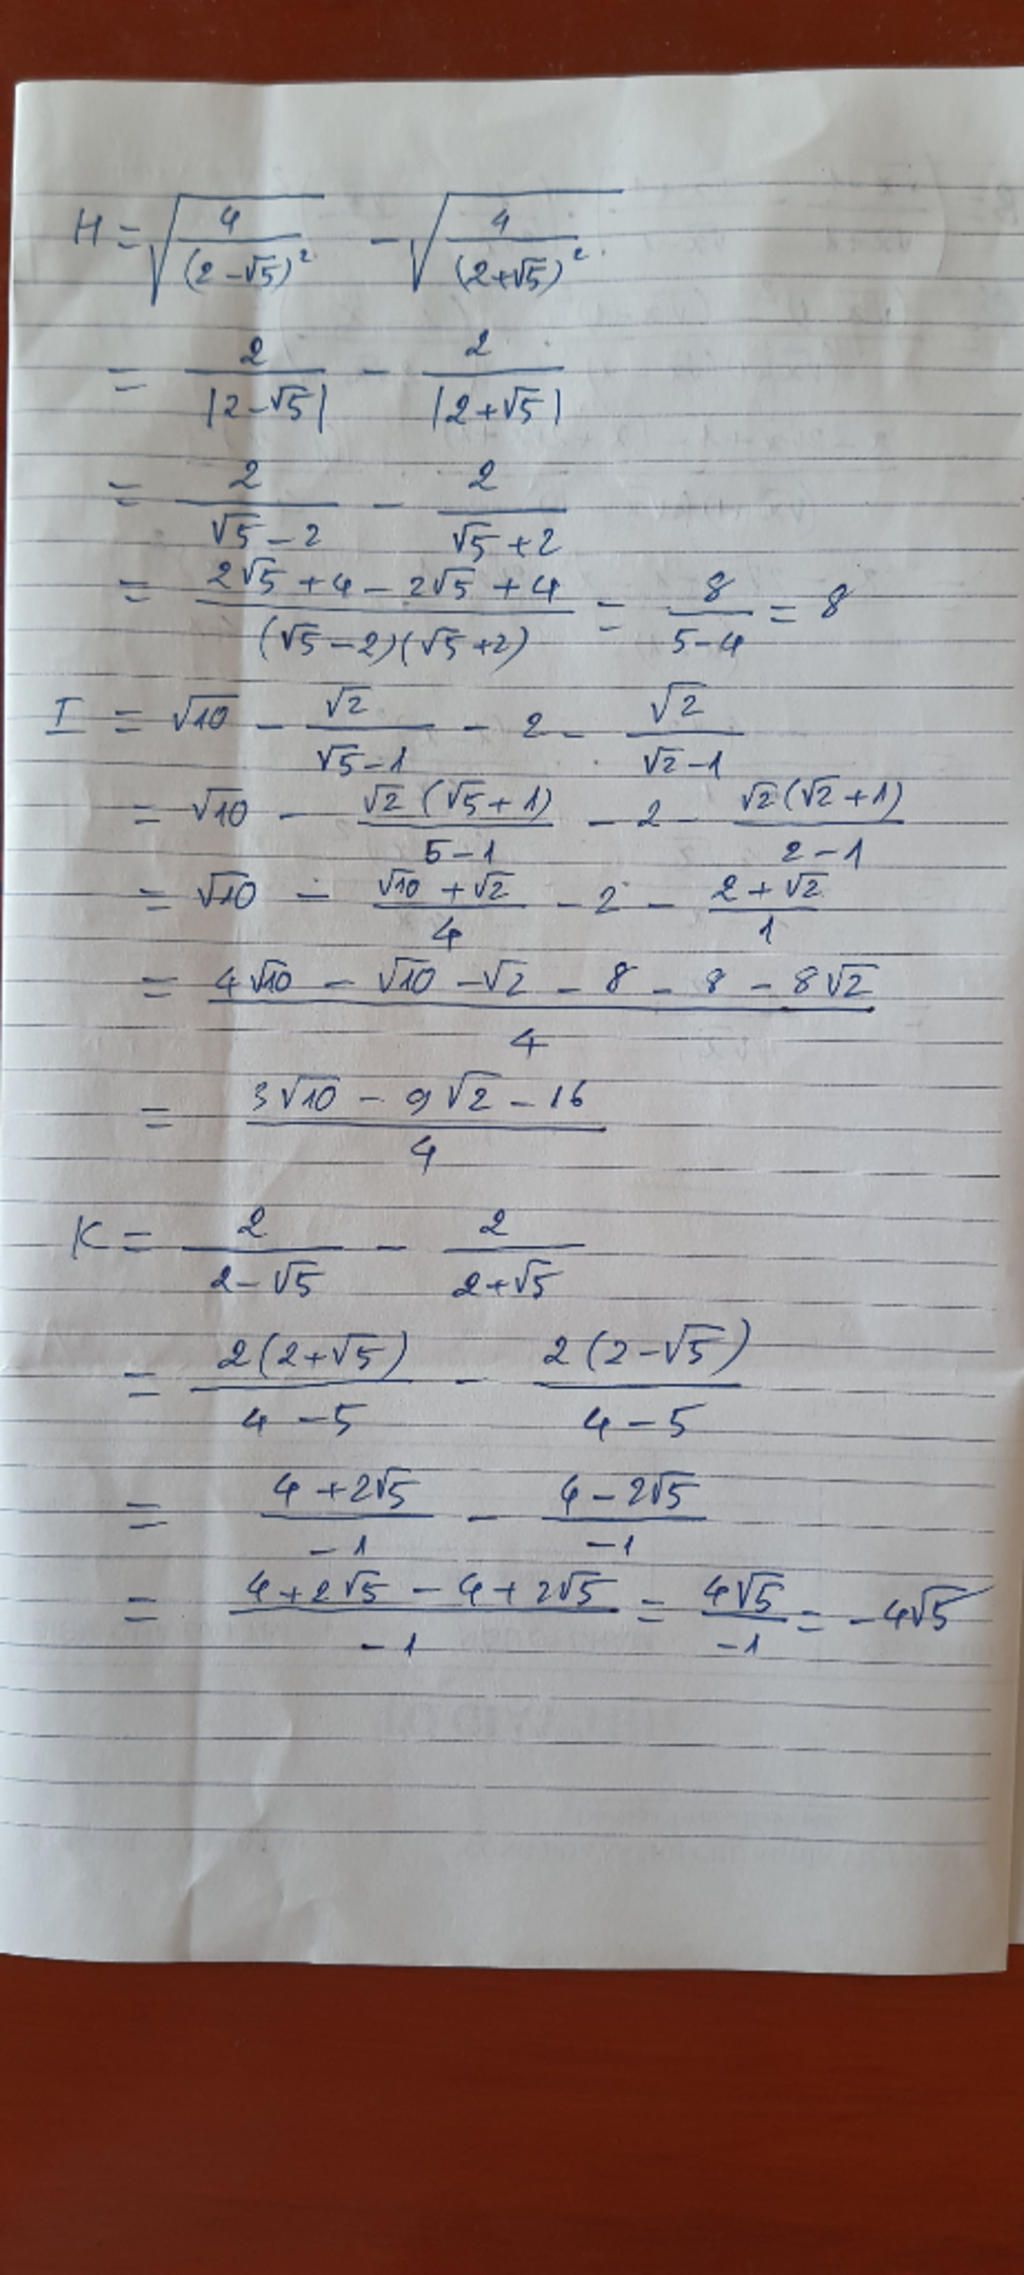 H = √(4/(2-√5)²) - √(4/(2+√5)²)
= 2/|2-√5| - 2/|2+√5|
= 2/(√5-2) - 2/(√5+2)
= (2√5+4-2√5+4)/((√5-2)(√5+2)) = 8/(5-4) = 8
I = √10 - √2/(√5-1) - 2 - √2/(√2-1)
= √10 - √2(√5+1)/(5-1) - 2 - √2(√2+1)/(2-1)
= √10 - (√10+√2)/4 - 2 - (2+√2)/1
= (4√10 - √10 - √2 - 8 - 8 - 8√2)/4
= (3√10 - 9√2 - 16)/4
K = 2/(2-√5) - 2/(2+√5)
= 2(2+√5)/(4-5) - 2(2-√5)/(4-5)
= (4+2√5)/(-1) - (4-2√5)/(-1)
= (4+2√5-4+2√5)/(-1) = 4√5/(-1) = -4√5